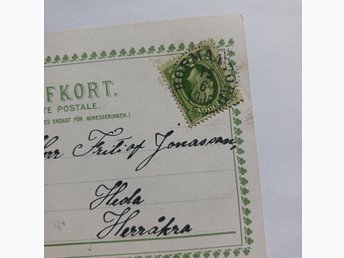 FKORT.
TE POSTALE.
ES ENDAST FÖR ADRESSERINGEN.)
Herr Fritiof Jonasson,
Heda
Herråkra